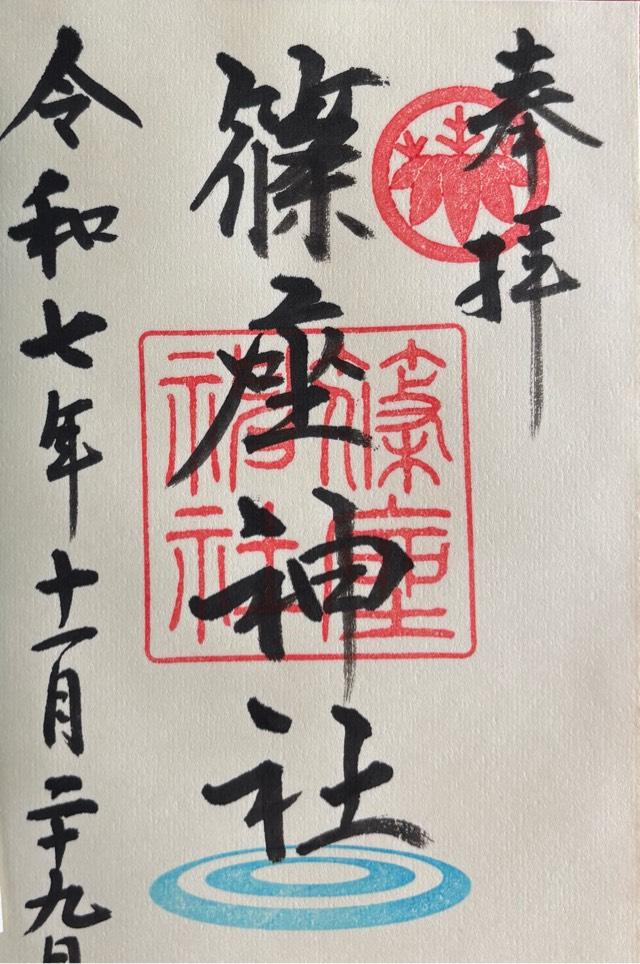 奉拝
篠座神社
篠座神社
令和七年十一月二十九日